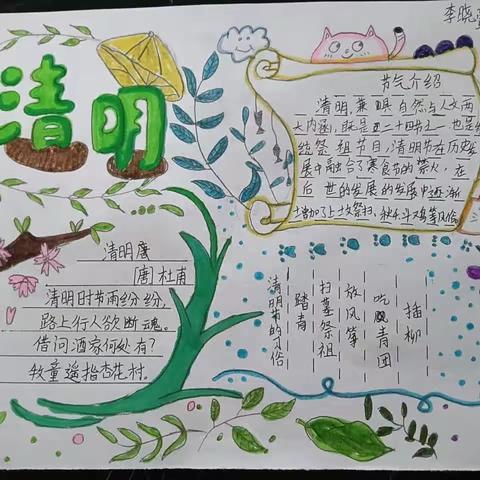 清明
李晓
节气介绍
清明,兼具自然与人文两
大内涵,既是二十四节,也是
统祭祖节日,清明节在历史
展中融合了寒食节的禁火,在
后世的发展的发展中逐渐
增加了上坟祭扫、秋千斗鸡等风俗
清明唐
[唐]杜甫
清明时节雨纷纷,
路上行人欲断魂。
借问酒家何处有?
牧童遥指杏花村。
清明节的习俗
踏青
扫墓祭祖
放风筝
吃青团
插柳